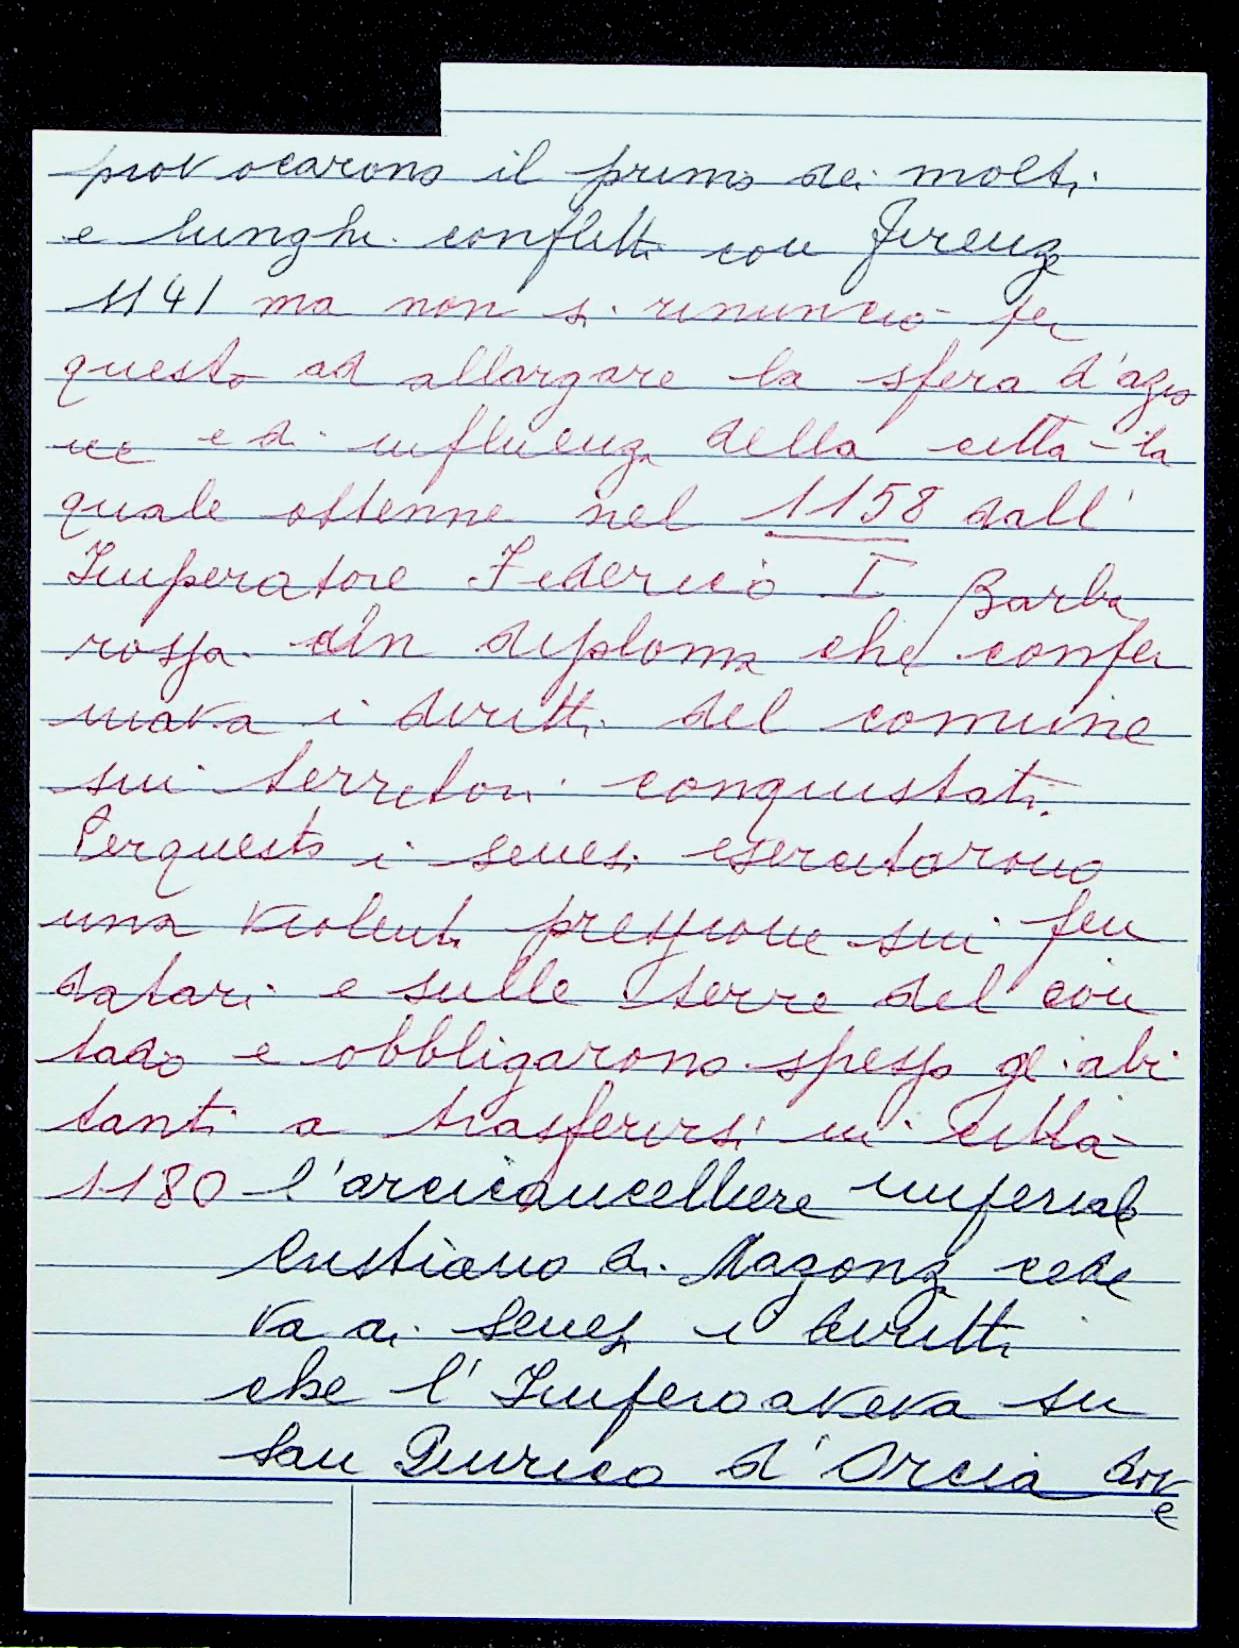 provocarono il primo dei molti
e lunghi conflitti con Firenze
1141 ma non si rinunciò per
questo ad allargare la sfera d'azio
ne e di influenza della città - la
quale ottenne nel 1158 dall'
Imperatore Federico I Barba
rossa un diploma che confer
mava i diritti del comune
sui territori conquistati.
Per questo i senesi esercitarono
una violenta pressione sui feu
datari e sulle terre del con
tado e obbligarono spesso gli abi
tanti a trasferirsi in città
1180 l'arcicancelliere imperiale
Cristiano di Magonza cede
va ai senesi i diritti
che l'Impero aveva su
San Quirico d'Orcia dove